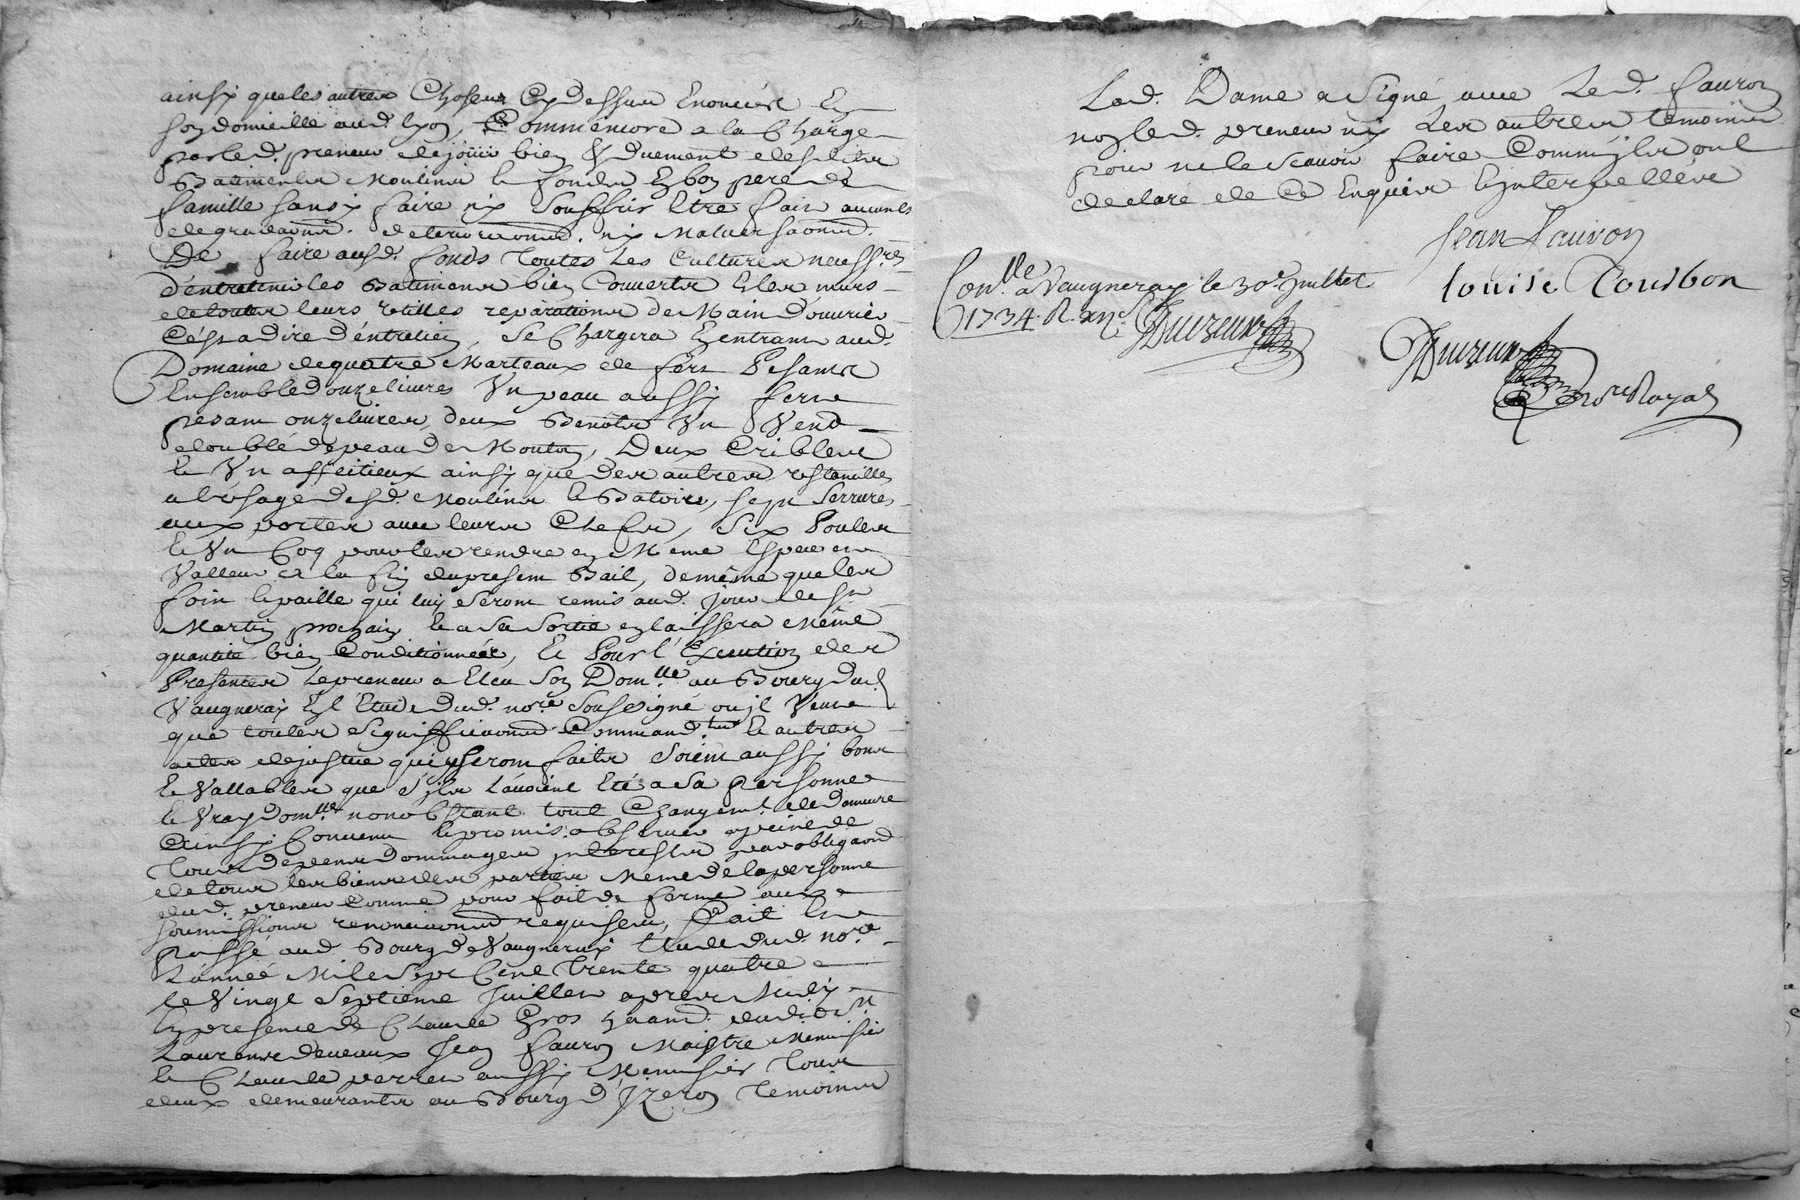 ainsy que les autres Choses Cydessus Enoncées En
son domicille aud. lyon, Comm'encore a la Charge
par led. preneur de joüir bien & duement desdits
Batiments Moulins & fonds En bon pere de
famille sans y faire ny souffrir Etre fait aucunes
degradaons. deterioraons. ny Malversaons.
De faire ausd. fonds toutes Les Cultures necess.res
d'entretenir les Batiments bien Couverts & les murs
de toutes leurs reparations de Main d'ouvrier
C'est a dire d'entretien, Se Chargera En entrant aud.
Domaine de quatre Marteaux de fert Pesants
Ensemble douze livres Un peau aussy ferre
pesant onze livres, deux Benots Un Vend
doublé de peau de Mouton, Deux Cribles
& Un affeitieux ainsy que des autres ustencilles
a l'usage desd. Moulins & Batoire, sept Serrures
aux portes avec leurs Clefs, Six Poules
& Un Coq pour les rendre en Meme Espece &
Valleur a la fin du present Bail, de même que les
foin & paille qui luy Seront remis aud. jour de St
Martin prochain & a Sa Sortie en laissera Même
quantité bien Conditionnées, Et Pour l'Execution des
Presentes Le preneur a Eleu Son Dom.lle au Bourg dud.
Vaugneray En l'Etude dud. no.re Soussigné ou il Veut
que toutes Significaons Command.ts & autres
actes de justice qui y seront faits Soient aussy bons
& Vallables que S'ils L'avoient Eté a Sa Personne
& Vray dom.lle nonobstant tout Changem.t de demeure
Ainsy Convenu & promis observer a peine de
Tous depens dommages interests par obligaon
de tous les biens des parties Meme de la personne
dud. preneur Comme pour fait de ferme aux
soumissions renonciaons requises, Fait &
passé aud. Bourg de Vaugneray Etude dud. no.re
L'année Mil Sept Cent Trente quatre
le Vingt Septieme Juillet apres Midy
En presence de Claude Gros habitant dudit St
Laurent de vaux Jean fauron Maistre Menusier
& Claude perret aussy Menusier Tous
deux demeurants au Bourg d'Izeron Temoins
Lad. Dame a Signé avec Led. fauron
non led. preneur ny Les autres temoins
pour ne le Scavoir faire Comm'ils ont
declaré de Ce Enquis & interpellés
Jean fauron
louise Tourbon
Con.lle a Vaugneray le 30e Juillet
1734. R.
no.re Royal